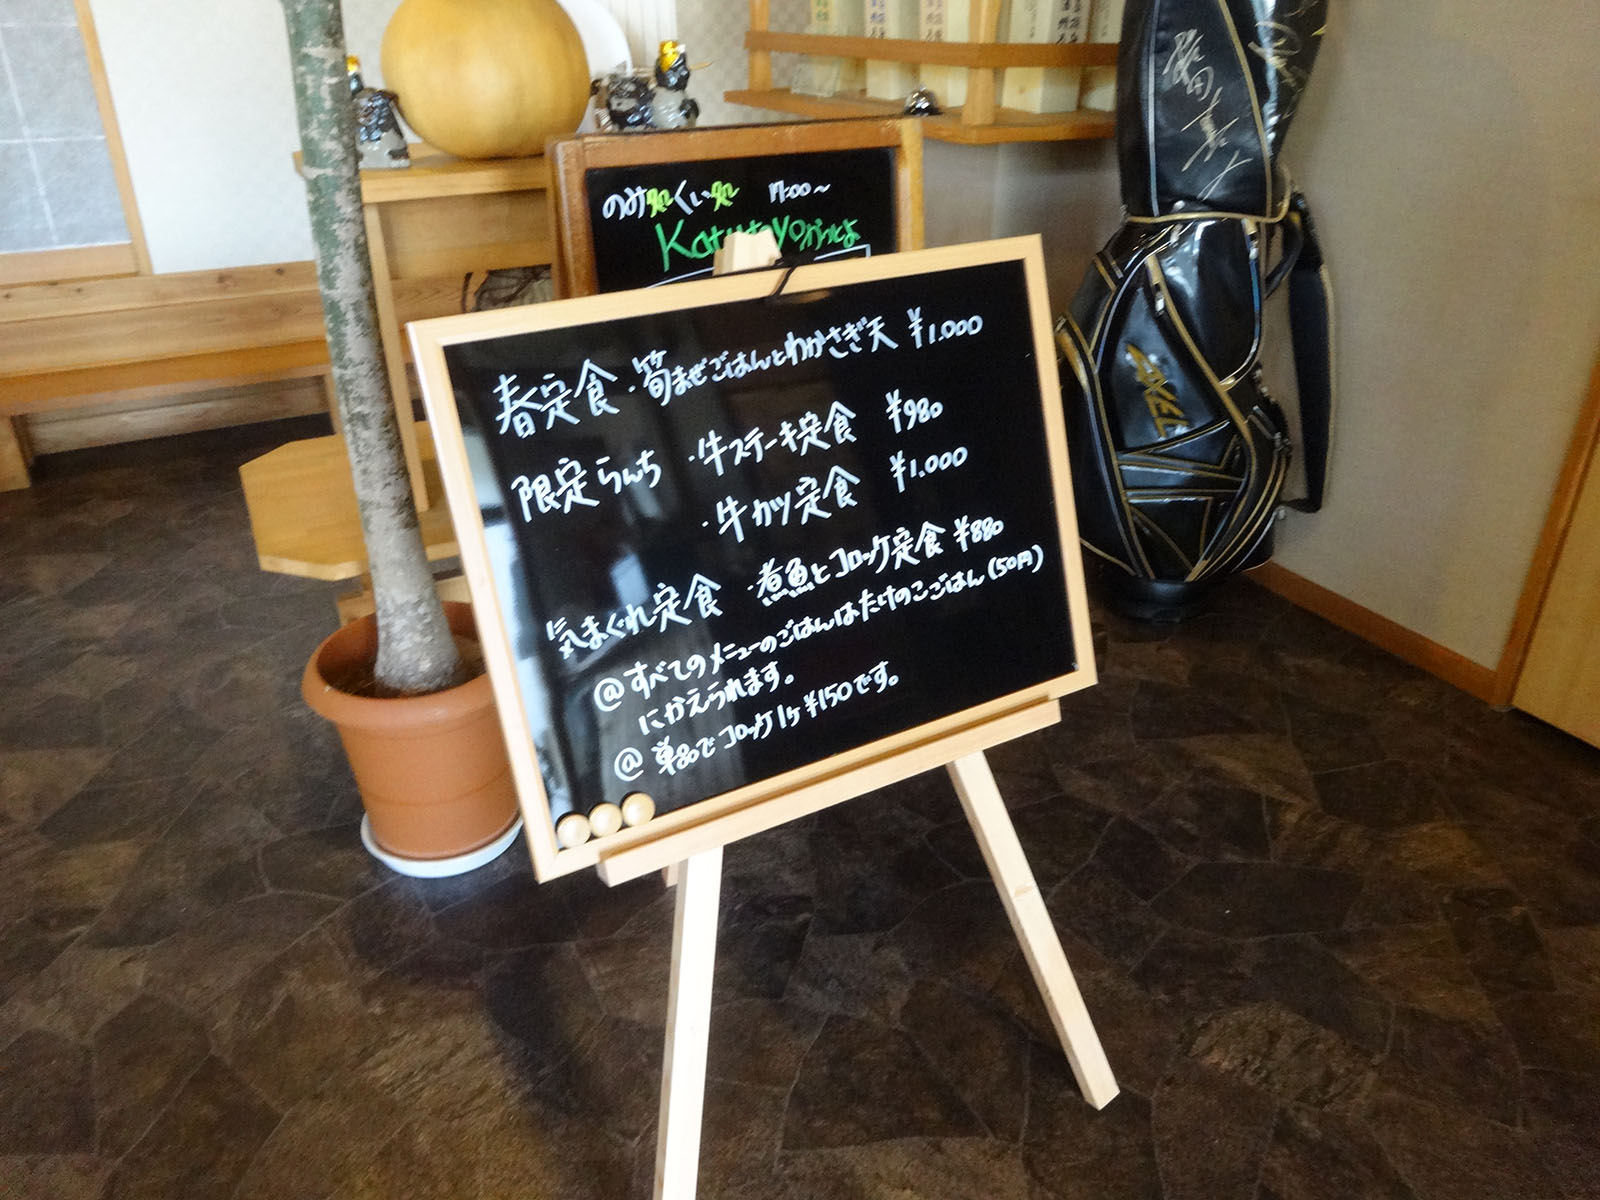 のみ処くい処 17:00〜
春定食・筍まぜごはんとわかさぎ天 ¥1.000
限定らんち ・牛ステーキ定食 ¥980
・牛カツ定食 ¥1.000
気まぐれ定食 ・煮魚とコロッケ定食 ¥880
@すべてのメニューのごはんはたけのこごはん(50円)
にかえられます。
@単品でコロッケ1ヶ¥150です。